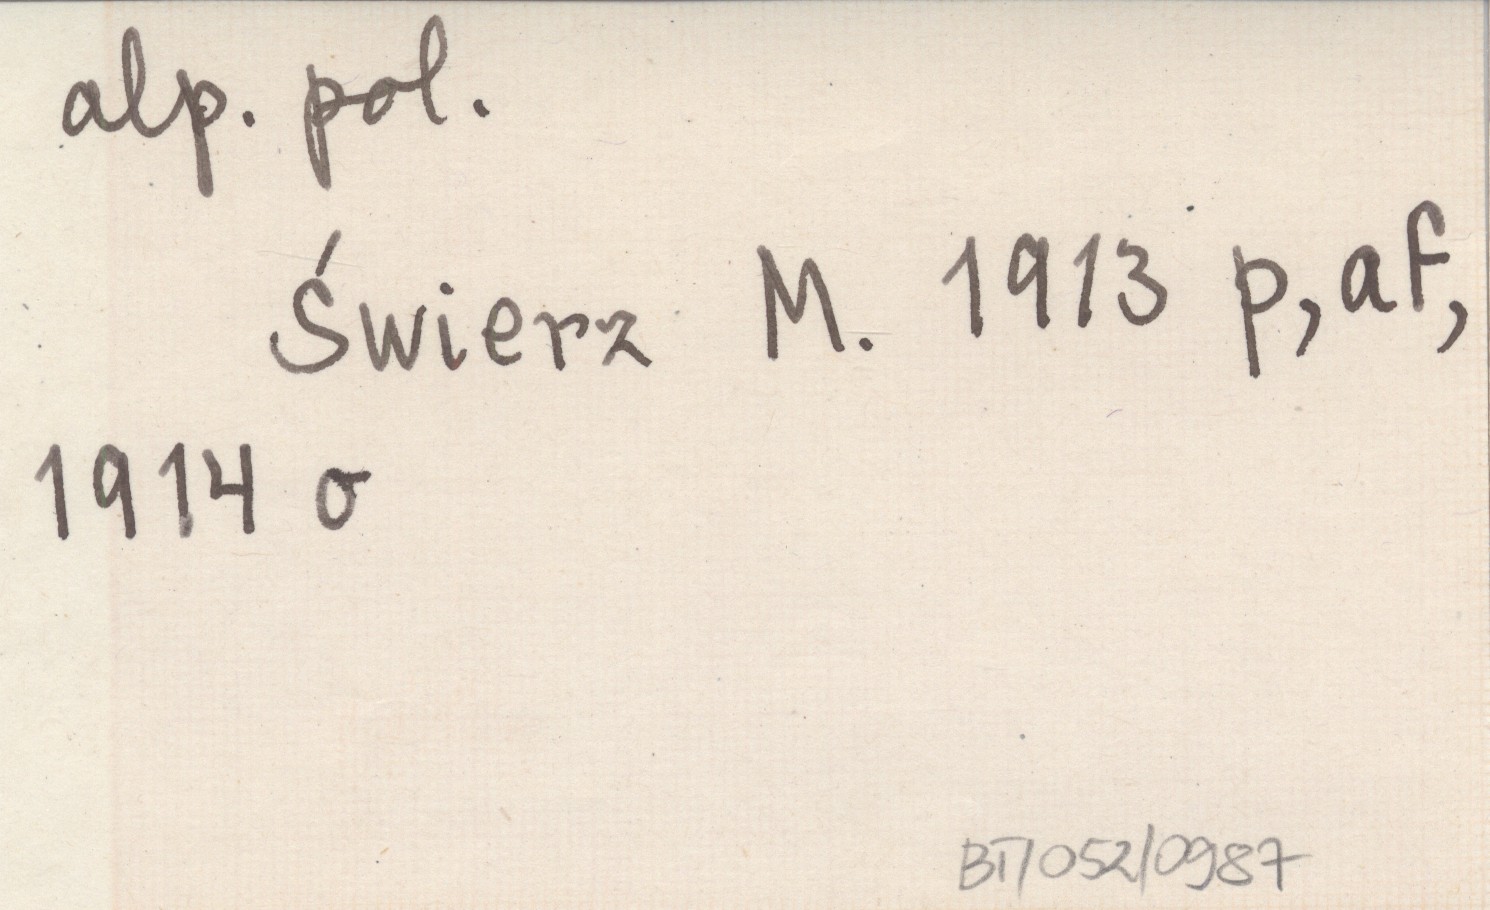 alp. pol.
Świerz M. 1913 p, af,
1914 o
BT/052/0987